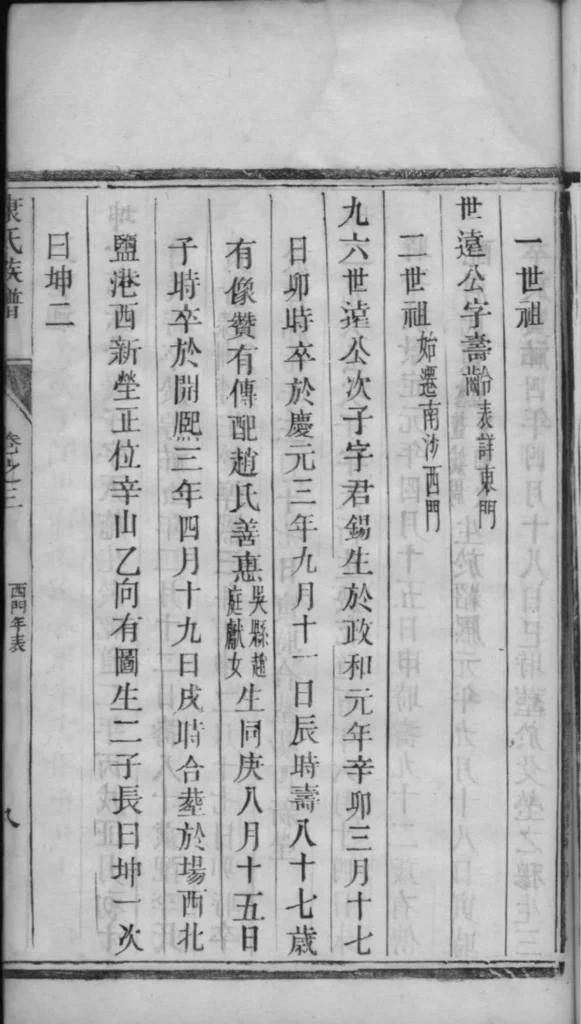 一世祖
世遠公字壽齡表詳東門
二世祖始遷南沙西門
九六世遠公次子字君錫生於政和元年辛卯三月十七
日卯時卒於慶元三年九月十一日辰時壽八十七歲
有像贊有傳配趙氏善惠吳縣趙庭獻女生同庚八月十五日
子時卒於開熙三年四月十九日戌時合塟於場西北
鹽港西新塋正位辛山乙向有圖生二子長曰坤一次
曰坤二
氏族譜
卷之三
西門年表
八